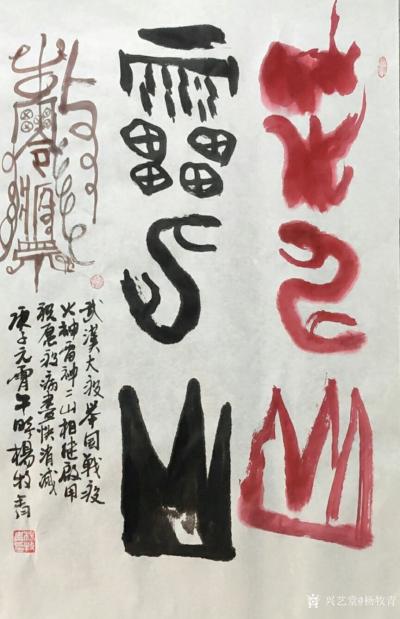 火神山
雷神山
武漢大疫举国戰疫
火神雷神二山相继啟用
祝愿疫病盡快消滅
庚子元霄午時楊牧青
兴艺堂@杨牧青